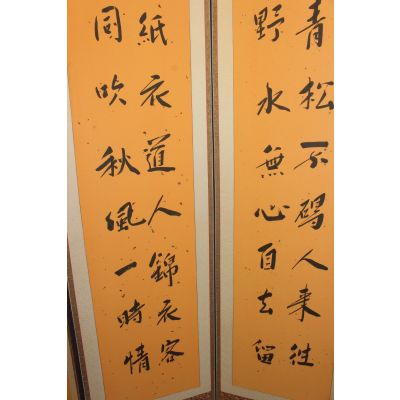 青松不碍人來往
野水無心自去留
紙衣道人錦衣客
同吹秋風一時情